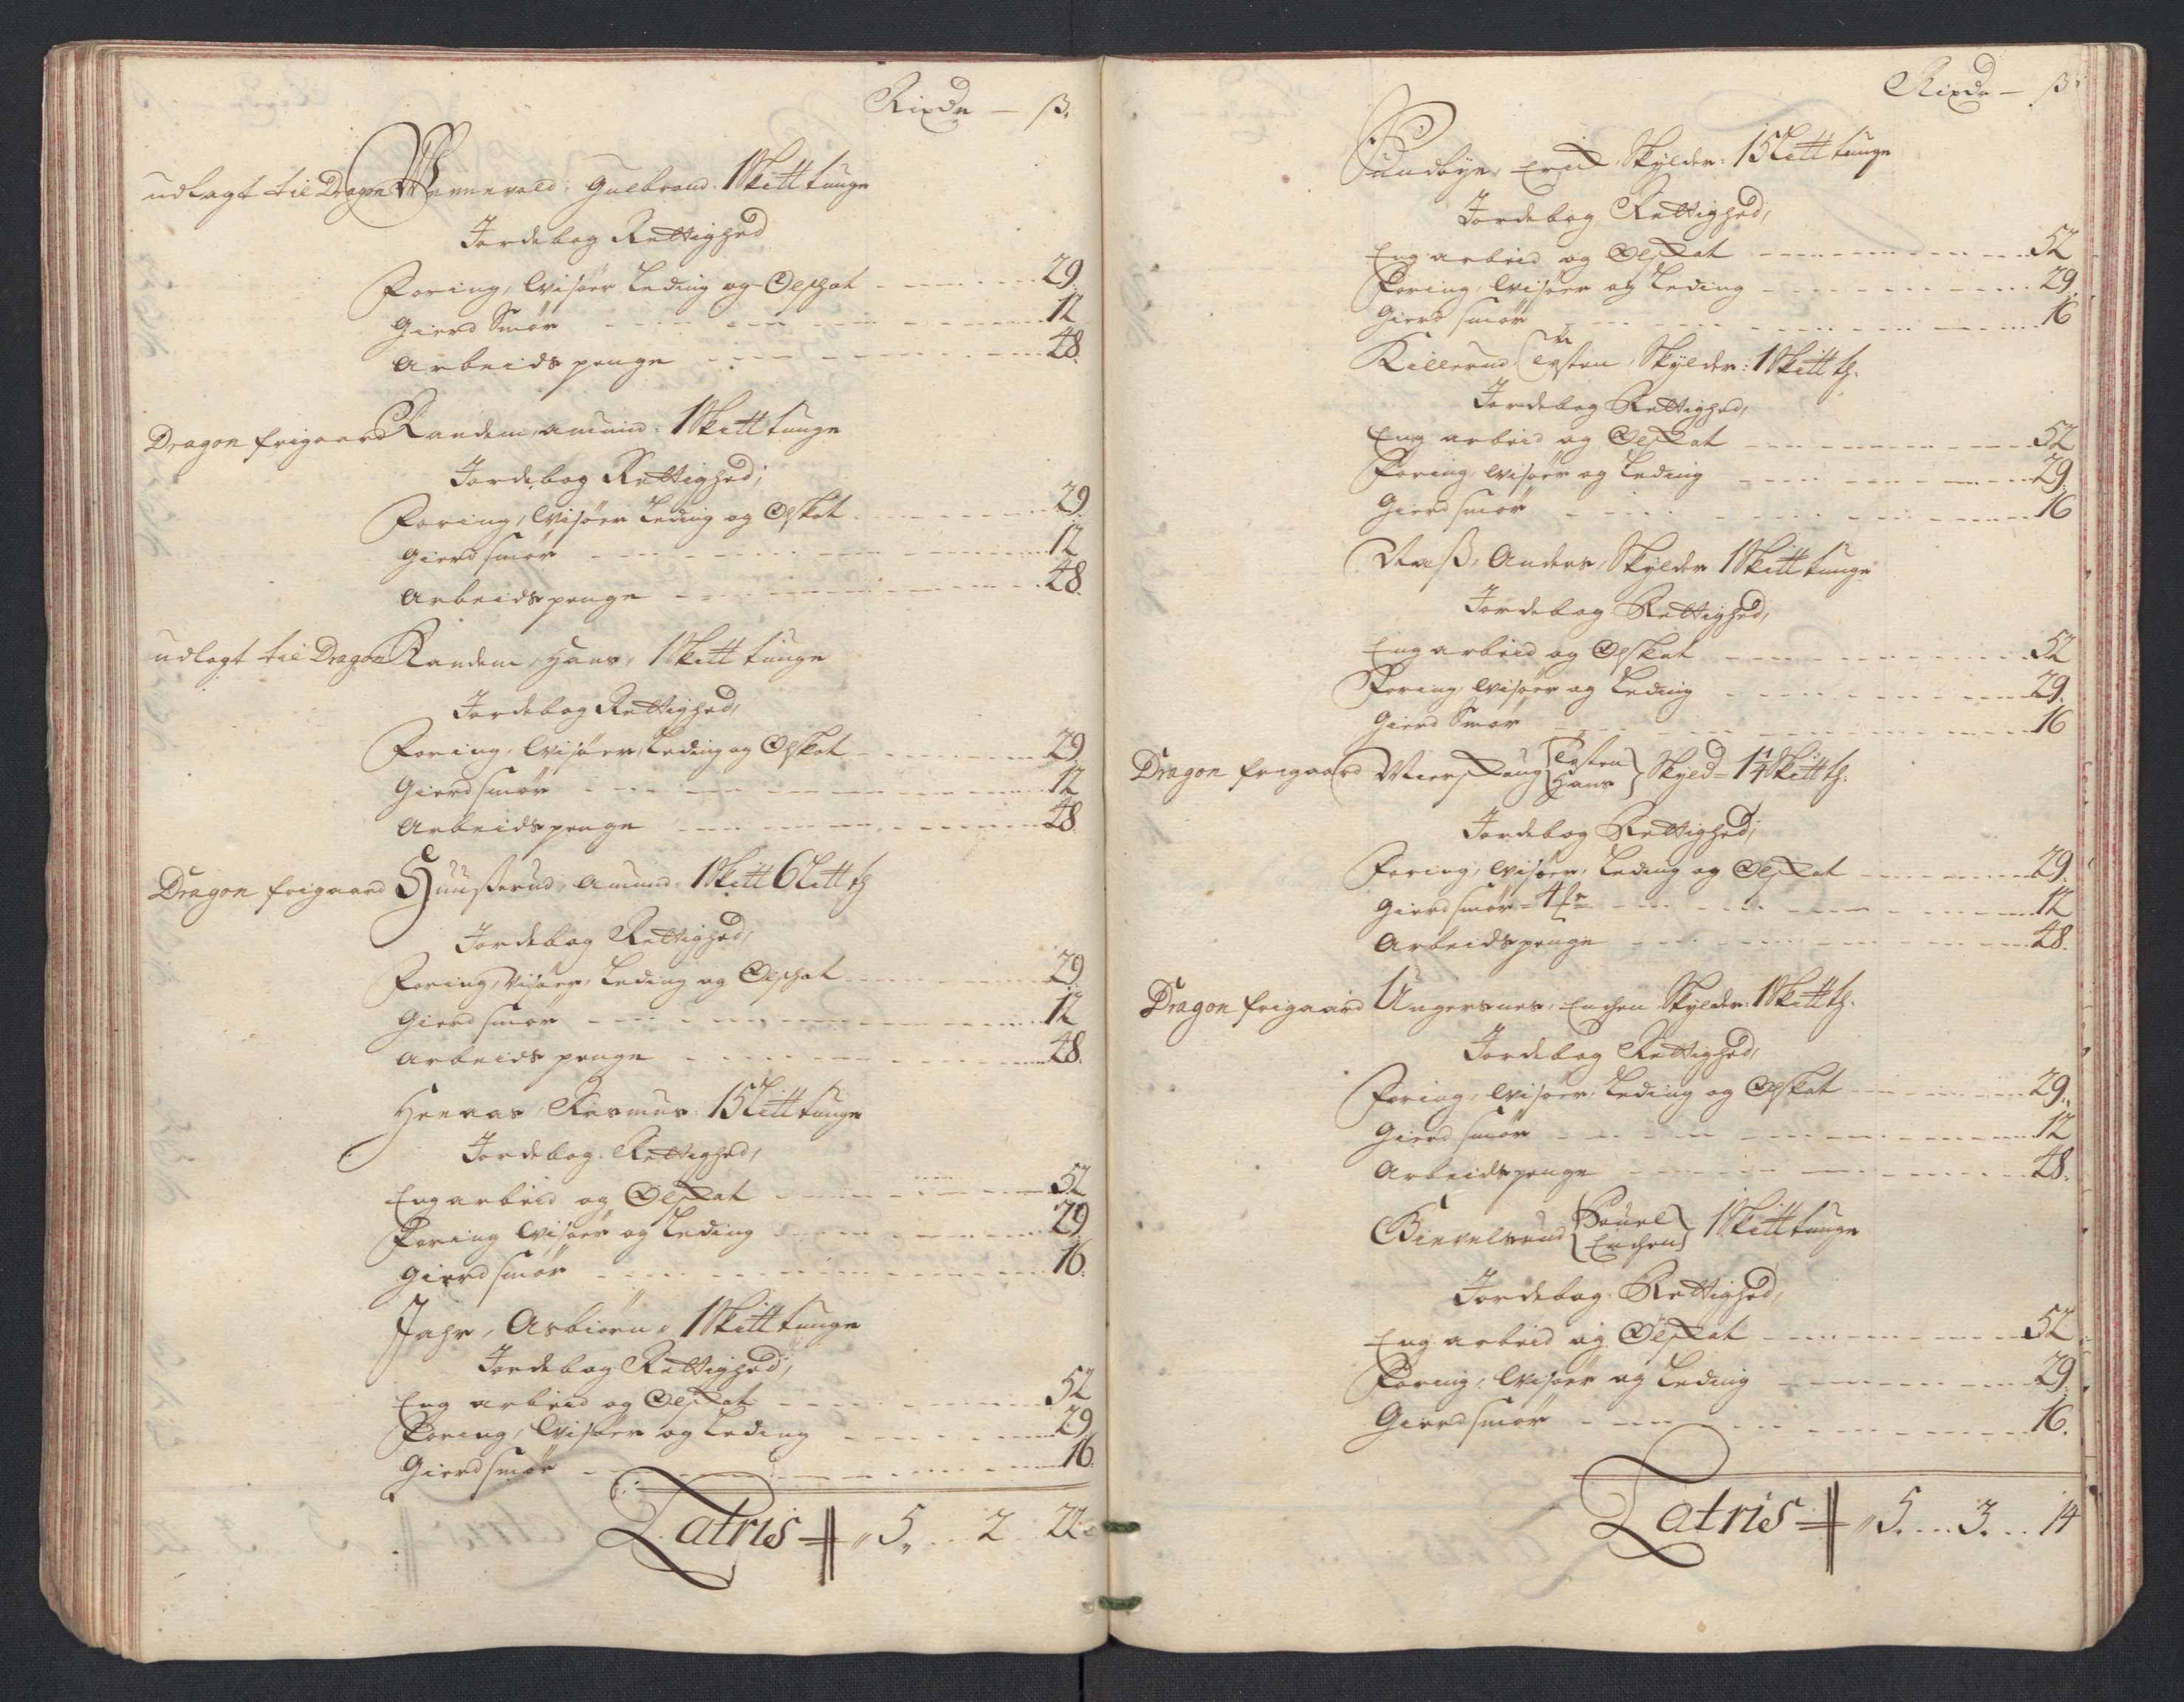 Rixdr — ß.
udlagt til Dragon Wernevald, Gulbrand. 1 Skitt tunge
Jordebog Rettighed
Foring, Wisøer Leding og Ølschat 29.
Gierd Smør 12
Arbeids penge 48.
Dragon frigaard Randem, Amund. 1 Skitt tunge
Jordebog Rettighed,
Foring, Wisøer Leding og Ølskat 29.
Gierd smør 12
Arbeids penge 48.
udlagt til Dragon Randem, Hans, 1 Skitt tunge
Jordebog Rettighed,
Foring, Wisøer, Leding og Ølskat 29.
Gierd smør 12
Arbeids penge 48.
Dragon frigaard Amund. 1 Skitt 6 Litt th
Jordebog Rettighed,
Foring, Visøer, Leding og Ølschat 29.
Gierd smør 12
Arbeids penge 48.
Rasmus. 15 Litt tunge
Jordebog Rettighed,
Eng arbeid og Ølskat 52
Foring Wisøer og Leding 29.
Gierd smør 16.
Jahr, Asbiørn, 1 Skitt tunge
Jordebog Rettighed,
Eng arbeid og Ølskat 52
Foring, Wisøer og Leding 29.
Gierd smør 16.
Latris 5. 2 22
Rixdr — ß.
Sundbye, Erich, Skylder: 15 Litt tunge
Jordebog Rettighed,
Eng arbeid og Ølskat 52
Foring, Wisøer og Leding 29.
Gierd smør 16
Killerud, Skylder: 1 Skitt th.
Jordebog Rettighed,
Eng arbeid og Ølskat 52
Foring, Wisøer og Leding 29.
Gierd smør 16
Næss, Anders, Skylder 1 Skitt tunge
Jordebog Rettighed,
Eng arbeid og Ølskat 52
Foring, Wisøer og Leding 29.
Gierd Smør 16
Dragon frigaard Hans Skyld = 1¼ Skitt th.
Jordebog Rettighed,
Foring, Wisøer, Leding og Ølskat 29.
Gierd smør = 4 12
Arbeids penge 48.
Dragon frigaard Ungersnes, Enchen Skylder: 1 Skitt th.
Jordebog Rettighed,
Foring, Wisøer, Leding og Ølskat 29.
Gierd smør 12
Arbeids penge 48.
Pouel Enchen 1 Skitt tunge
Jordebog Rettighed,
Eng arbeid og Ølskat 52
Foring, Wisøer og Leding 29.
Gierd smør 16.
Latris 5. 3. 14